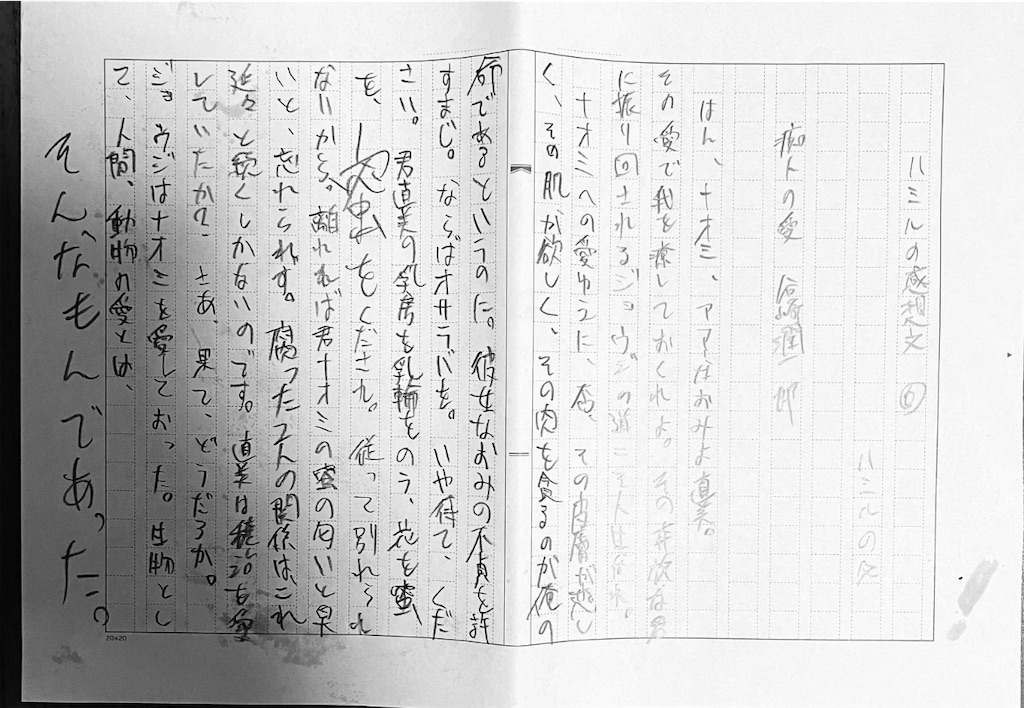 ハミルの感想文 ⑥
ハミルの兄
痴人の愛 谷崎潤一郎
はん、ナオミ、アアナはおみよ直美。
その愛で我を療しておくれよ。その莽欲な男
に振り回されるジョウヂの道こそ人生なれ。
ナオミへの愛ゆうに、否、その皮膚が恋し
く、その肌が欲しく、その肉を貪るのが俺の
命であるというのに。彼女なおみの不貞を許
すまじ。ならばオサラバを。いや待て、くだ
さい。君直美の乳房を乳輪をのう、花を蜜
を、をください。従って別れられ
ないから。離れれば君ナオミの蜜の匂いと臭
いと、忘れられず。腐った二人の関係はこれ
延々と続くしかないのです。直美は穣治を愛
していたか？さあ、果て、どうだろか。
ジョウジはナオミを愛しておった。生物とし
て、人間、動物の愛とは、
そんなもんであった。
20×20